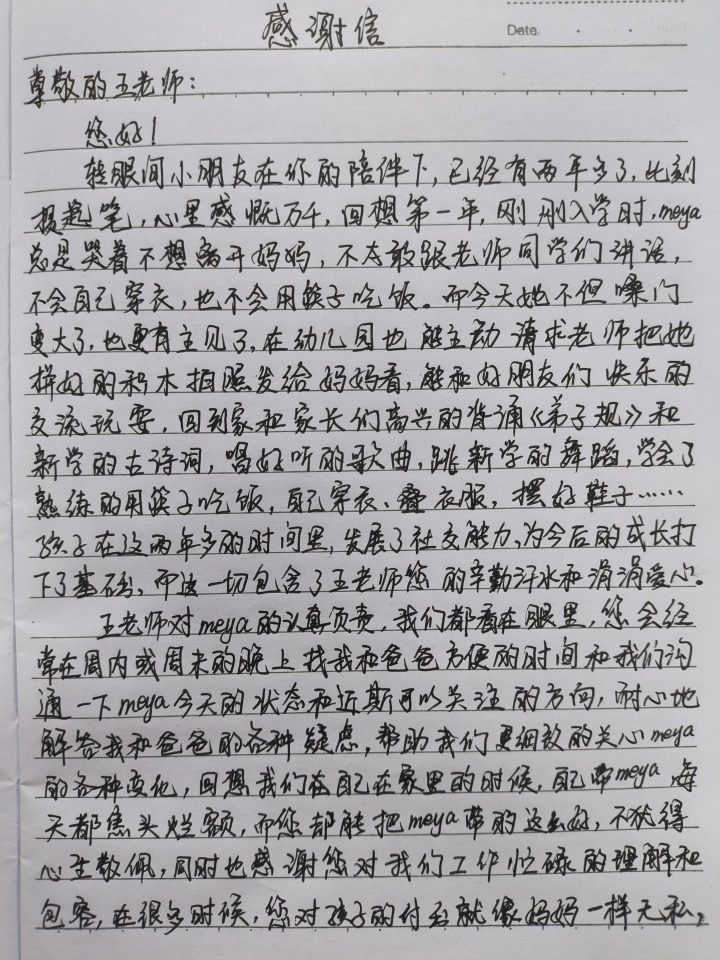 感谢信
Date.
尊敬的王老师：
您好！
转眼间小朋友在你的陪伴下，已经有两年多了，此刻
提起笔，心里感慨万千，回想第一年，刚刚入学时，meya
总是哭着不想离开妈妈，不太敢跟老师同学们讲话，
不会自己穿衣，也不会用筷子吃饭。而今天她不但嗓门
变大了，也更有主见了，在幼儿园也能主动请求老师把她
拼好的积木拍照发给妈妈看，能和好朋友们快乐的
交流玩耍，回到家和家长们高兴的背诵《弟子规》和
新学的古诗词，唱好听的歌曲，跳新学的舞蹈，学会了
熟练的用筷子吃饭，自己穿衣、叠衣服，摆好鞋子……
孩子在这两年多的时间里，发展了社交能力，为今后的成长打
下了基础，而这一切包含了王老师您的辛勤汗水和涓涓爱心。
王老师对meya的认真负责，我们都看在眼里，您会经
常在周内或周末的晚上找我和爸爸方便的时间和我们沟
通一下meya今天的状态和近期可以关注的方向，耐心地
解答我和爸爸的各种疑虑，帮助我们更细致的关心meya
的各种变化，回想我们在自己在家里的时候，自己带meya每
天都焦头烂额，而您却能把meya带的这么好，不犹得
心生敬佩，同时也感谢您对我们工作忙碌的理解和
包容，在很多时候，您对孩子的付出就像妈妈一样无私，